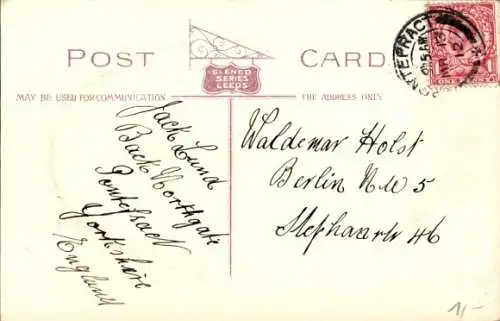 POST CARD
SLENED
SERIES
LEEDS
MAY BE USED FOR COMMUNICATION THE ADDRESS ONLY
PONTEFRACT
ONE PENNY
Jack Lund
Back Northgate
Pontefract
Yorkshire
England
Waldemar Holst
Berlin N.W 5
Stephanstr 46
1/-